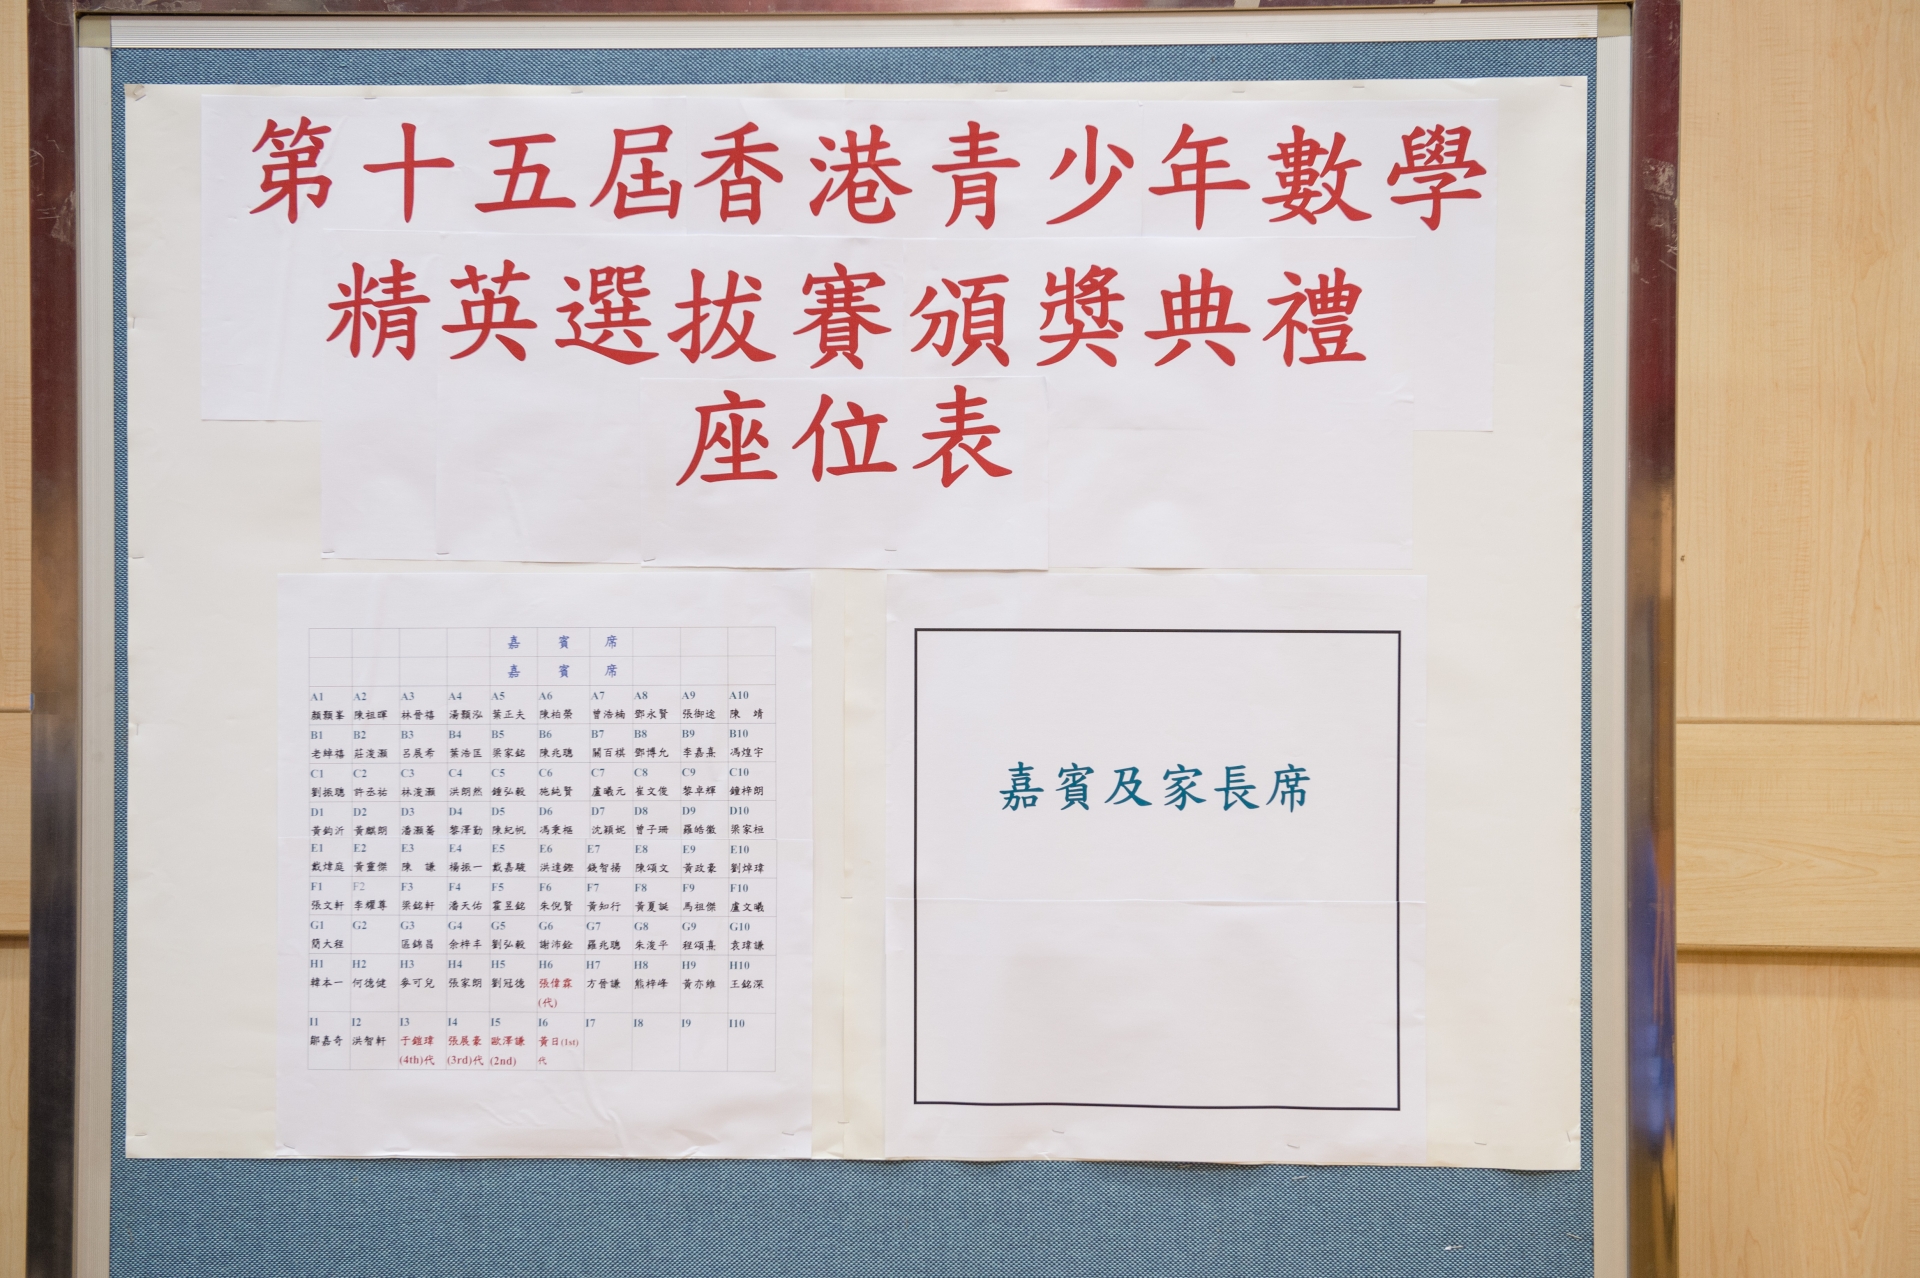 第十五屆香港青少年數學
精英選拔賽頒獎典禮
座位表
嘉 賓 席
嘉 賓 席
A1 A2 A3 A4 A5 A6 A7 A8 A9 A10
顏顥峯 陳祖暉 林晉禧 湯顥泓 葉正夫 陳柏榮 曾浩楠 鄧永賢 張御途 陳 靖
B1 B2 B3 B4 B5 B6 B7 B8 B9 B10
莊浚灝 呂展希 葉浩匡 梁家銘 陳兆聰 關百棋 鄧博允 李嘉熹 馮煌宇
C1 C2 C3 C4 C5 C6 C7 C8 C9 C10
劉振聰 許丞祐 林浚灝 洪朗然 鍾弘毅 施純賢 盧曦元 崔文俊 黎卓輝 鐘梓朗
D1 D2 D3 D4 D5 D6 D7 D8 D9 D10
黃鈞沂 黃麒朗 黎澤勤 陳紀帆 馮秉樞 沈穎妮 曾子珊 羅皓徽 梁家桓
E1 E2 E3 E4 E5 E6 E7 E8 E9 E10
戴煒庭 黃靈傑 陳 謙 楊振一 戴嘉駿 洪達鏗 錢智揚 陳頌文 黃政豪 劉焯瑋
F1 F2 F3 F4 F5 F6 F7 F8 F9 F10
張文軒 李耀尊 梁銘軒 潘天佑 霍昱銘 朱倪賢 黃知行 黃夏誕 馬祖傑 盧文曦
G1 G2 G3 G4 G5 G6 G7 G8 G9 G10
簡大程 區錦昌 余梓丰 劉弘毅 謝沛銓 羅兆聰 朱浚平 程頌熹 袁瑋謙
H1 H2 H3 H4 H5 H6 H7 H8 H9 H10
韓本一 何德健 麥可兒 張家朗 劉冠德 張偉霖 方晉謙 熊梓峰 黃亦維 王銘深
(代)
I1 I2 I3 I4 I5 I6 I7 I8 I9 I10
鄒嘉奇 洪智軒 于鎧瑋 張展豪 歐澤謙 黃日(1st)
(4th)代 (3rd)代 (2nd) 代
嘉賓及家長席